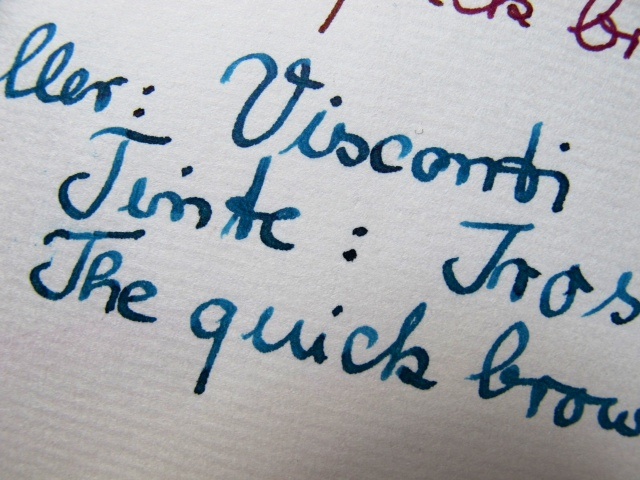 quick br
ller: Visconti
Tinte: Tros
The quick brow